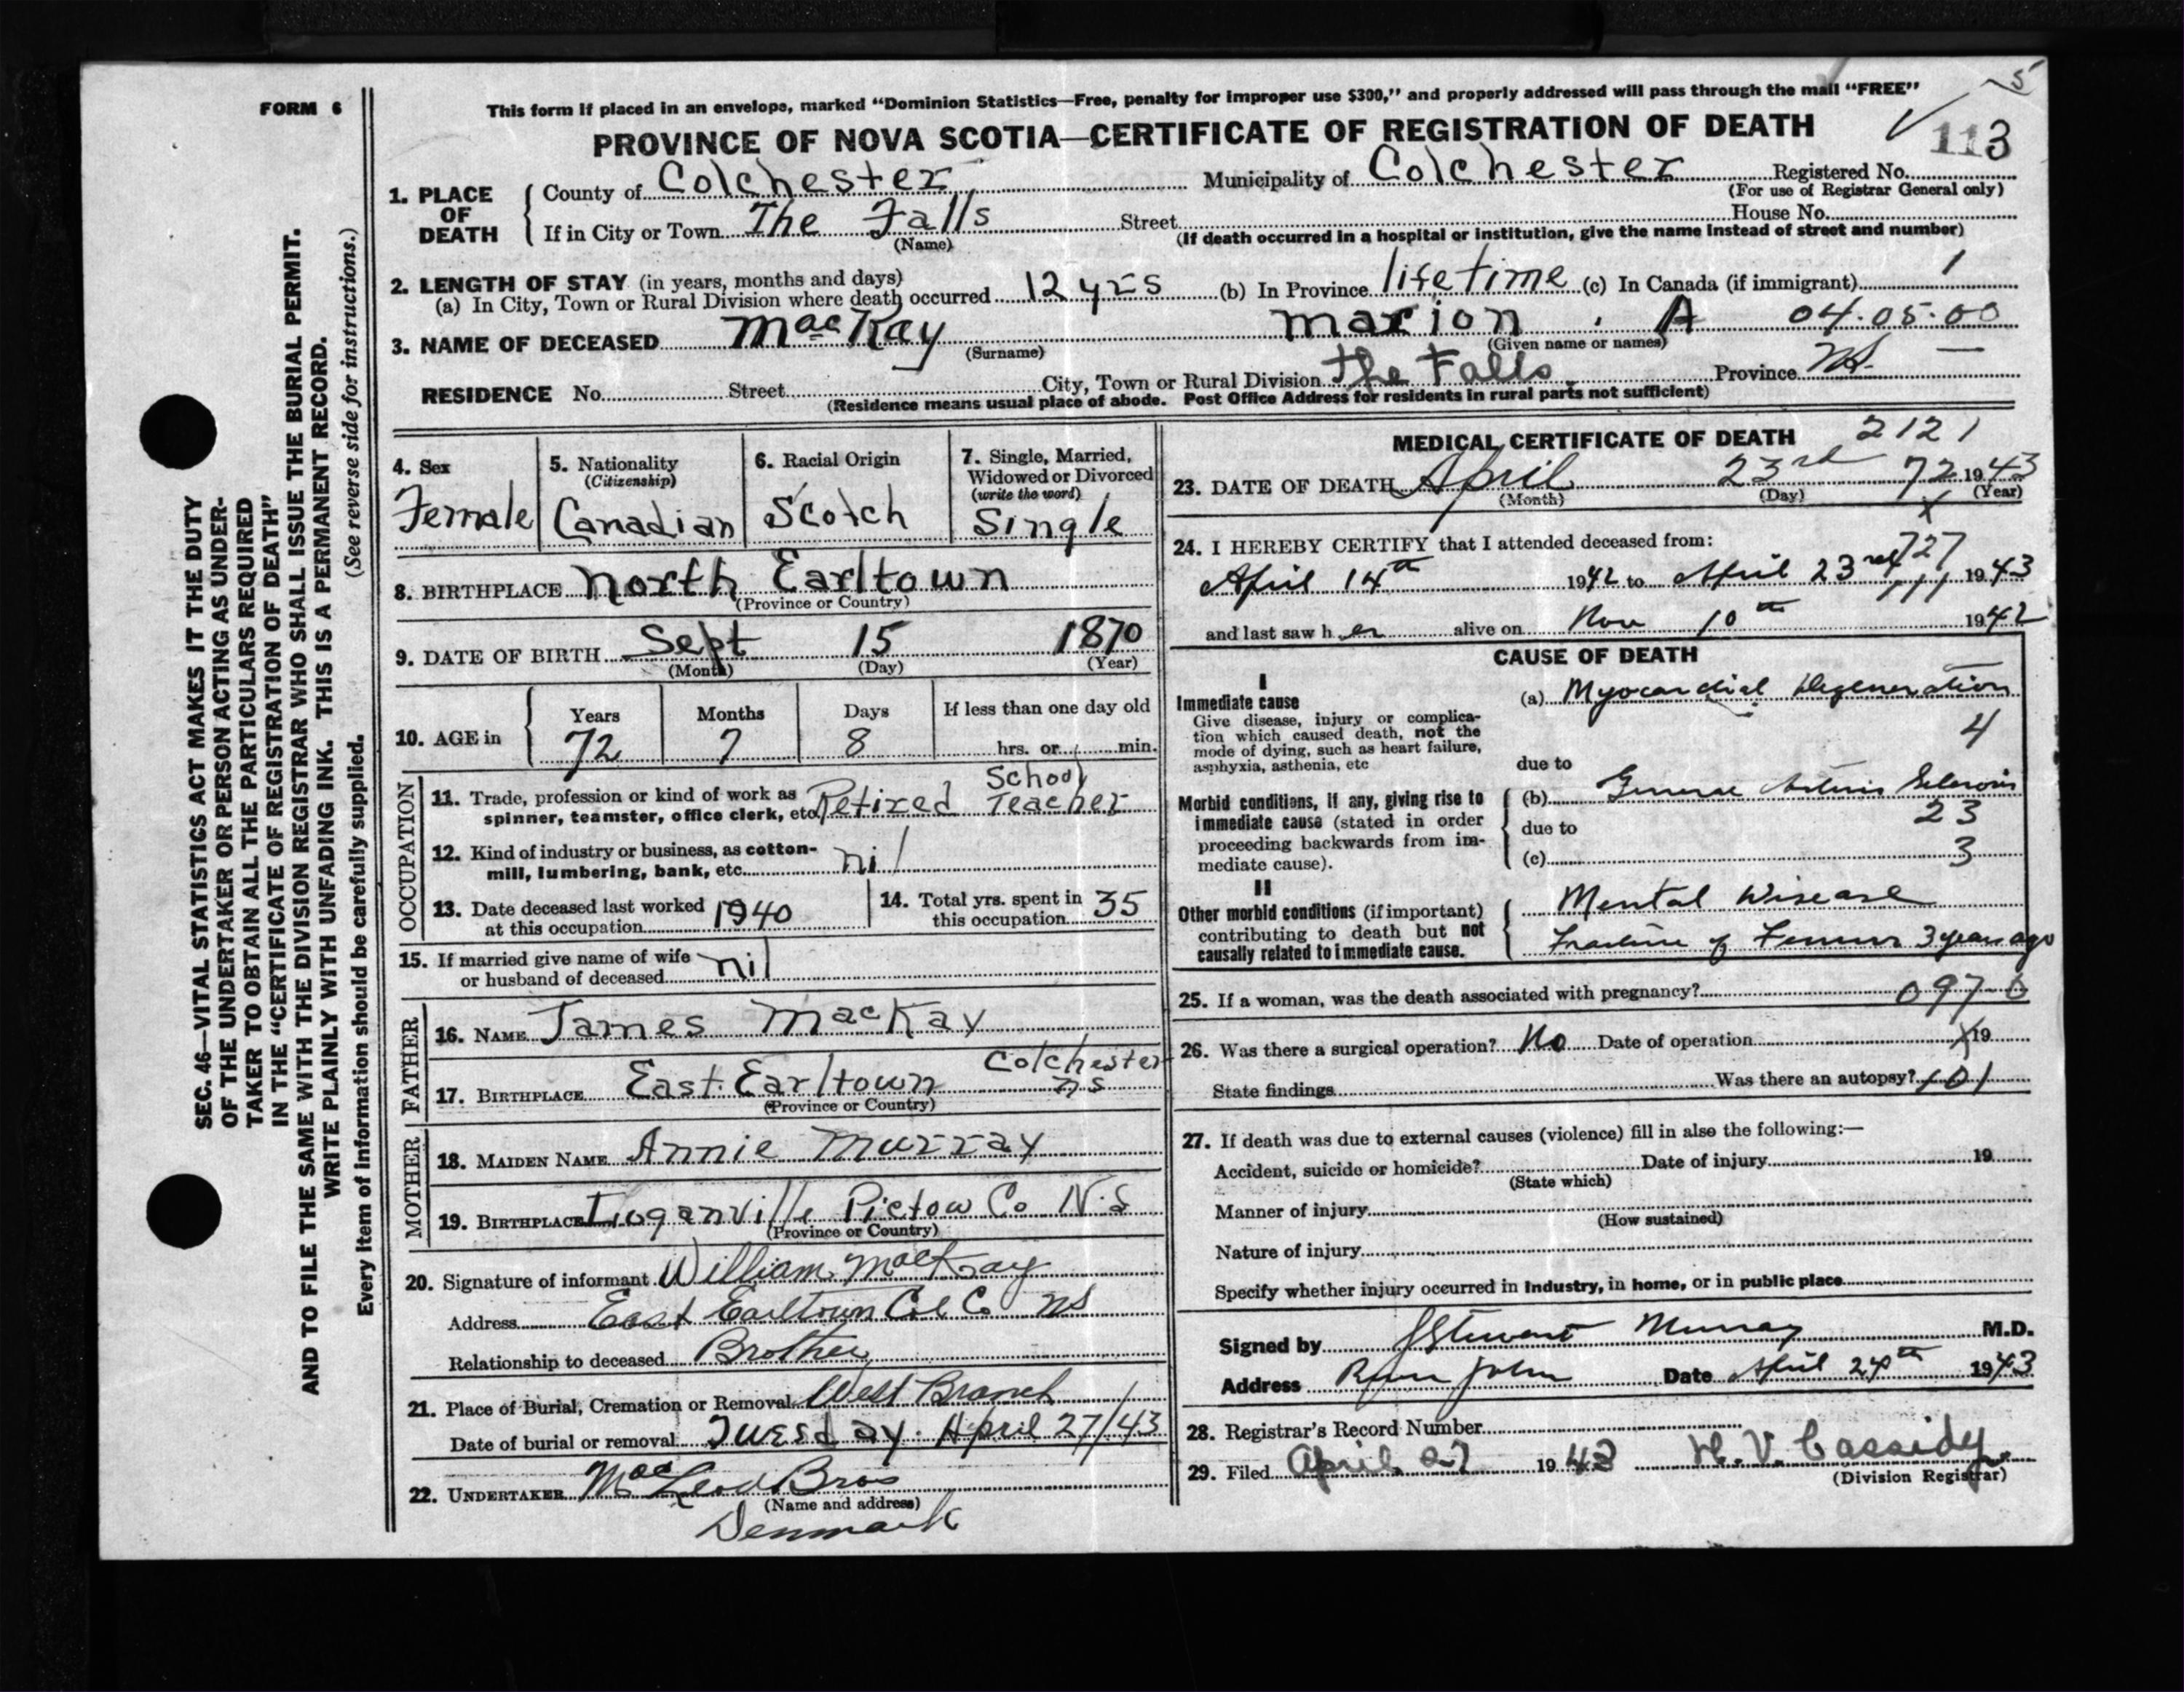 FORM 6
This form if placed in an envelope, marked “Dominion Statistics—Free, penalty for improper use $300,” and properly addressed will pass through the mail “FREE”
5
PROVINCE OF NOVA SCOTIA—CERTIFICATE OF REGISTRATION OF DEATH
113
1. PLACE OF DEATH
County of Colchester Municipality of Colchester Registered No.
(For use of Registrar General only)
If in City or Town The Falls Street House No.
(Name) (If death occurred in a hospital or institution, give the name instead of street and number)
2. LENGTH OF STAY (in years, months and days)
(a) In City, Town or Rural Division where death occurred 12 yrs (b) In Province lifetime (c) In Canada (if immigrant) 1
3. NAME OF DECEASED MacKay Marion A 04.05.00
(Surname) (Given name or names)
RESIDENCE No. Street City, Town or Rural Division The Falls Province NS —
(Residence means usual place of abode. Post Office Address for residents in rural parts not sufficient)
4. Sex
Female
5. Nationality
(Citizenship)
Canadian
6. Racial Origin
Scotch
7. Single, Married,
Widowed or Divorced
(write the word)
Single
8. BIRTHPLACE North Earltown
(Province or Country)
9. DATE OF BIRTH Sept 15 1870
(Month) (Day) (Year)
10. AGE in
Years Months Days If less than one day old
72 7 8 hrs. or min.
OCCUPATION
11. Trade, profession or kind of work as
spinner, teamster, office clerk, etc. Retired School Teacher
12. Kind of industry or business, as cotton-
mill, lumbering, bank, etc. nil
13. Date deceased last worked
at this occupation 1940
14. Total yrs. spent in
this occupation 35
15. If married give name of wife
or husband of deceased nil
FATHER
16. NAME James MacKay
17. BIRTHPLACE East Earltown Colchester NS
(Province or Country)
MOTHER
18. MAIDEN NAME Annie Murray
19. BIRTHPLACE Loganville Pictow Co N.S
(Province or Country)
20. Signature of informant William MacKay
Address East Earltown Col Co NS
Relationship to deceased Brother
21. Place of Burial, Cremation or Removal West Branch
Date of burial or removal Tuesday. April 27/43
22. UNDERTAKER MacLeod Bros
(Name and address)
Denmark
MEDICAL CERTIFICATE OF DEATH 2121
23. DATE OF DEATH April 23rd 72 1943
(Month) (Day) (Year)
x
24. I HEREBY CERTIFY that I attended deceased from:
727
April 14th 1942 to April 23rd 1943
and last saw her alive on Nov 10th 1942
CAUSE OF DEATH
I
Immediate cause
Give disease, injury or complica-
tion which caused death, not the
mode of dying, such as heart failure,
asphyxia, asthenia, etc
(a) Myocardial Degeneration
4
due to
Morbid conditions, if any, giving rise to
immediate cause (stated in order
proceeding backwards from im-
mediate cause).
(b) General Arterio Sclerosis
23
due to
(c) 3
II
Other morbid conditions (if important)
contributing to death but not
causally related to immediate cause.
Mental Disease
Fracture of Femur 3 years ago
25. If a woman, was the death associated with pregnancy? 097-0
26. Was there a surgical operation? No Date of operation 19
State findings Was there an autopsy? 101
27. If death was due to external causes (violence) fill in also the following:—
Accident, suicide or homicide? Date of injury 19
(State which)
Manner of injury
(How sustained)
Nature of injury
Specify whether injury occurred in industry, in home, or in public place
Signed by J Stewart Murray M.D.
Address River John Date April 24th 1943
28. Registrar's Record Number
29. Filed April 27 1943 H. V. Cassidy
(Division Registrar)
SEC. 46—VITAL STATISTICS ACT MAKES IT THE DUTY
OF THE UNDERTAKER OR PERSON ACTING AS UNDER-
TAKER TO OBTAIN ALL THE PARTICULARS REQUIRED
IN THE “CERTIFICATE OF REGISTRATION OF DEATH”
AND TO FILE THE SAME WITH THE DIVISION REGISTRAR WHO SHALL ISSUE THE BURIAL PERMIT.
WRITE PLAINLY WITH UNFADING INK. THIS IS A PERMANENT RECORD.
(See reverse side for instructions.)
Every item of information should be carefully supplied.